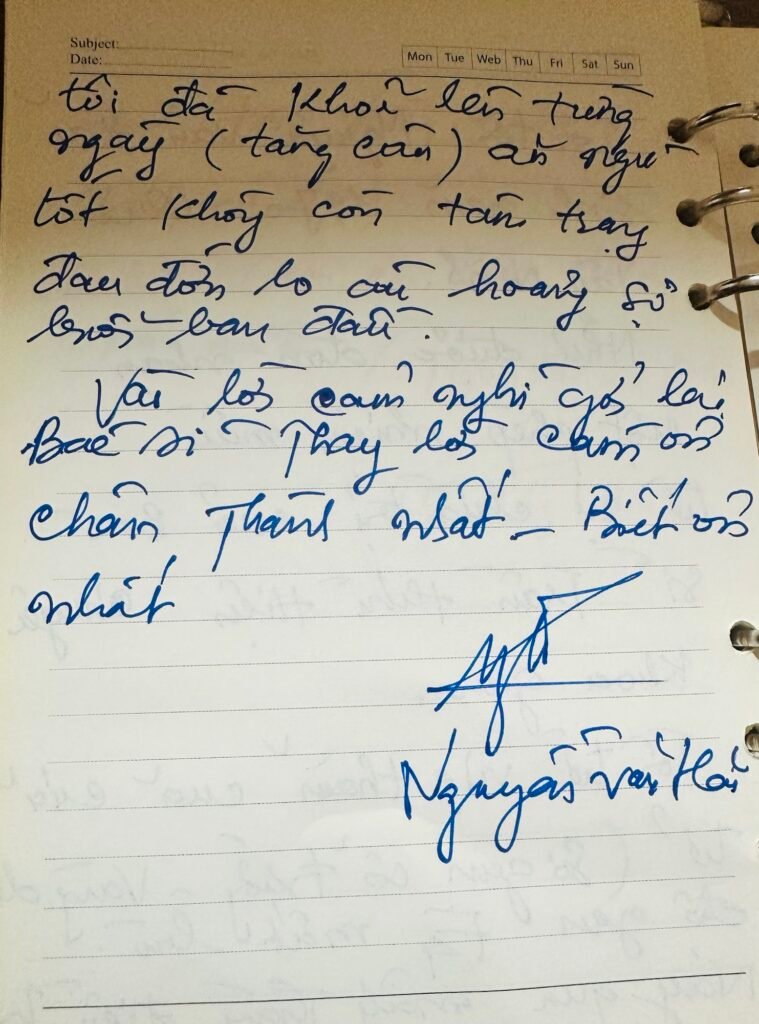 Subject:
Date:
Mon Tue Web Thu Fri Sat Sun
tôi đã khoẻ lên từng
ngày (tăng cân) ăn ngủ
tốt không còn tâm trạng
đau đớn lo âu hoảng sợ
buổi ban đầu.
Vài lời cảm nghĩ gởi lại
Bác sĩ Thay lời cảm ơn
chân Thành nhất - Biết ơn
nhất
Nguyễn Văn